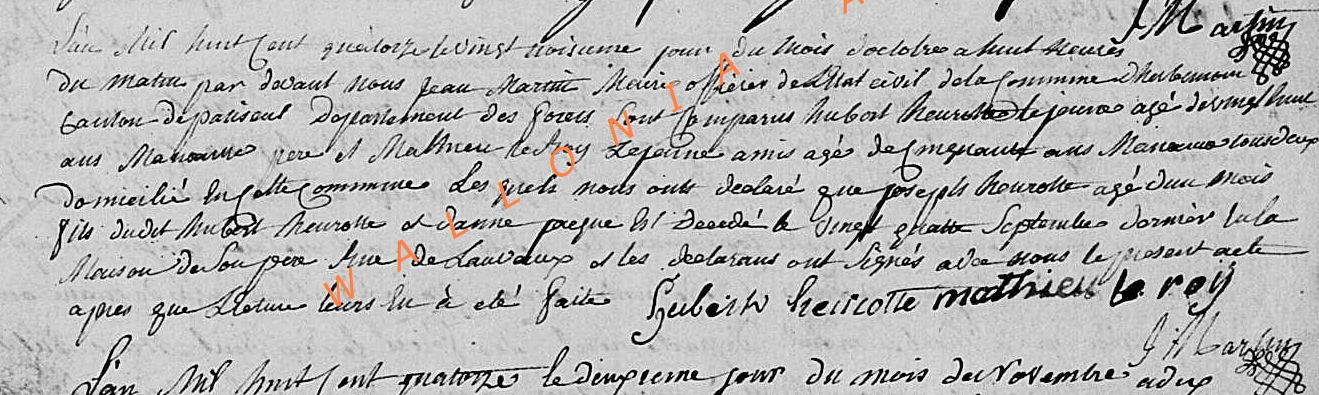 J Martin
L'an Mil huit Cent quatorze le vingt troisieme jour du mois d'octobre a huit heures
du matin par devant nous Jean Martin Maire officier de L'Etat civil de la Commune d'herbeumont
Canton de paliseul Departement des forets Sont Comparus hubert heurotte le jeune agé de vingt huit
ans Manoeuvre pere et Mathieu le Roy Lejeune amis agé de Cinquante ans Manoeuvre tous deux
domicilié En Cette Commune Les quels nous ont declaré que joseph heurotte agé d'un mois
fils dudit hubert heurotte et d'anne pacque Est Decedé le vingt quatre Septembre dernier En la
Maison de Son pere Rue de Lauvaux et les declarans ont Signés avec nous le present acte
apres que Lecture leurs En à eté faite Hubert heurotte mathieu le roy
J Martin
L'an Mil huit Cent quatorze le deuxieme jour du mois de Novembre a dix
WALLONIA